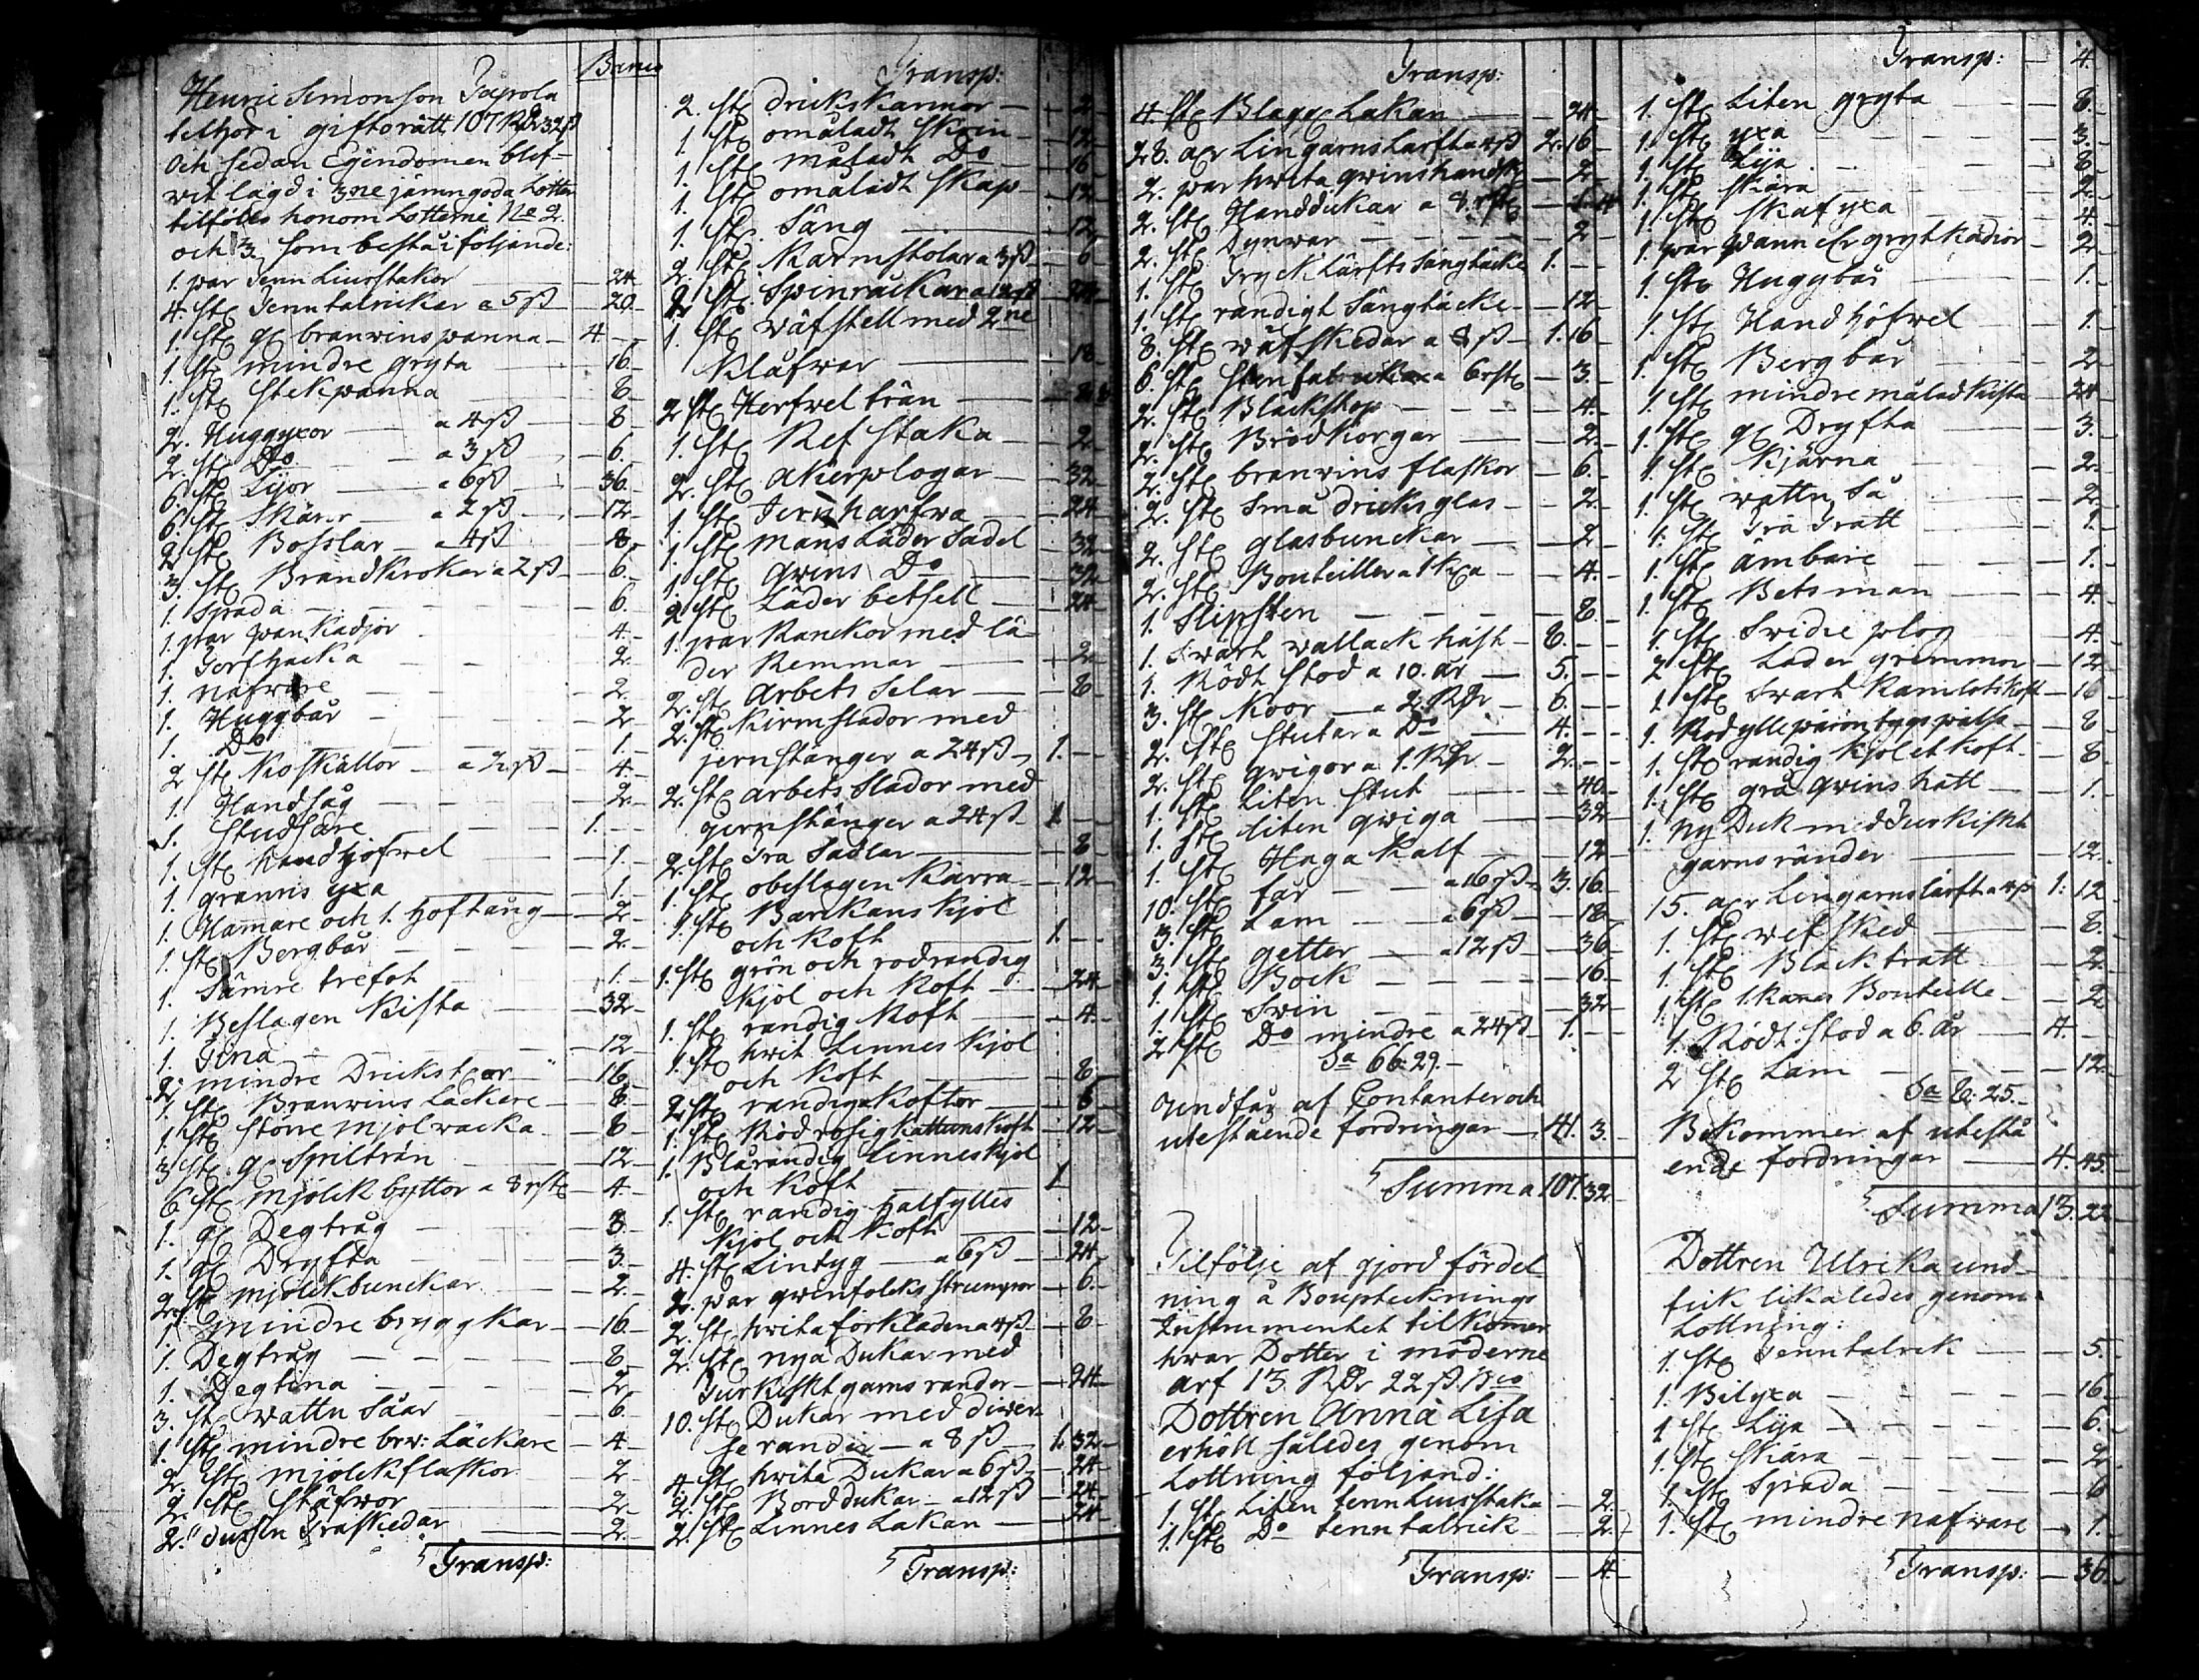 Banco
Henric Simonson Tapola
tilhör i giftorätt 107 Rdr 32 ß
och sedan Egendomen blif-
vit lagd i 3ne jämngoda Lotter
tilföllo honom Lotterne No 2.
och 3. som bestå i följande:
1. par Tenn Liusstakar — 24
4. stc Tenntalricker a 5 ß — 20
1. stc gl branvinspanna — 4. —
1. stc mindre gryta — 16.
1. stc stekpanna — 8
2. Huggyxor — a 4 ß — 8
2. stc Do — a 3 ß — 6.
6. stc Lijor — a 6 ß — 36.
6. stc Skäror — a 2 ß — 12
2 stc Bosslar — a 4 ß — 8.
3. stc Brandkrokar a 2 ß — 6.
1. Spada — 6.
1. par wankadjor — 4.
1. Torfhacka — 2.
1. nafvare — 2.
1. Huggbår — 2
1. Do — 1.
2 stc Koskällor — a 2 ß — 4.
1. Handsåg — 2.
1. Studsare — 1. —
1. stc handhöfvel — 1.
1. granris yxa — 1.
1. Hamare och 1. Hoftång — 2
1. stc Bergbår — 2.
1. Sämre trefot — 1.
1. Beslagen Kista — 32
1. Tina — 12
2. mindre Dricks — 16
1. stc Branwins Läckare — 8.
1. stc större mjölwacka — 8
3 stc gl Spiltrån — 12
6 stc mjölckbyttor a 8 rst — 4.
1. gl Degtråg — 3.
1. gl Dryfta — 3.
2 stc mjölckbunckar — 2.
1. mindre bryggkar — 16.
1. Degtråg — 8.
1. Degtina — 2
3. stc wattn Såar — 6.
1. stc mindre brv: Läckare — 4
2. stc mjölckflaskor — 2
2. stc Stäfwor — 2.
2. dussin Träskedar — 2.
Transp:
Transp:
2. stc drickskannor — 2
1. stc omåladt skrin — 12
1. stc måladt Do — 16
1. stc omåladt skap — 12
1. stc Säng — 12
2. stc Karmstolar a 3 ß — 6
2 stc Spinråckar a 12 ß — 24
1. stc wäfstell med 2ne
Klafwar — 18
2 stc Herfvelträn
1. stc Refstaka — 2
2. stc åkerplogar — 32
1. stc Jernharfva — 24
1. stc mans Läder Sadel — 32
1. stc qvins Do — 32
2 stc Läder betsell — 24
1. par Ranckor med lä-
der Remmar — 2
2. stc arbets Selar — 8
2. stc Kirmslädor med
jernstänger a 24 ß — 1. —
2. stc arbets Slädor med
gernstänger a 24 ß — 1. —
2. stc Trä Sadlar — 8
1. stc obeslagen Kärra — 12
1. stc Barkans Kjol
och Koft — 1. —
1. stc grön och rödrandig
Kjol och Koft — 24
1. stc randig Koft — 4
1. stc hvit Linnes Kjol
och Koft — 8
2 stc randiga Koftor — 8
1. stc Röd rosig kattunskoft — 12
1. Blårandig Linneskjol
och Koft — 1
1. stc randig halfylles
Kjol och Koft — 12
4. stc Lintyg — a 6 ß — 24
2. par qvinfolcks strumpor — 6
2. stc hvita förkläden a 4 ß — 8
2. stc nya Dukar med
Turkiskt garns rander — 24
10. stc Dukar med diver-
se rander — a 8 ß — 1. 32
4 stc hvita Dukar a 6 ß — 24
2. stc Borddukar — a 12 ß — 24
2. stc Linnes Lakan — 24
Transp:
Transp:
4. stc Blagg Lakan — 24
28. alr Lingarns Lärft a 4 ß — 2. 16
2. par hvita qvinshandsk — 2
2. stc Handdukar a 8 rst
2. stc Dynwar — 2
1. stc Tryck Lärfts Sängtäcke — 1. —
1. stc randigt Sängtäcke — 12
8. stc wäfskedar a 8 ß — 1. 16
6. stc Stenfat a 6 rst — 3.
2. stc Bläckstop — 4.
2. stc Brödkorgar — 2.
2. stc branvins flaskor — 6.
2. stc Små dricksglas — 2
2. stc glasbunckar — 2
2. stc Bouteiller a 1 Ka — 4.
1. Slipsten — 8
1. Swart wallack häst — 8.
1. Rödt stod a 10. år — 5. —
3. stc Koor — a 2. Rdr — 6. —
2. stc stutar a Do — 4. —
2. stc qvigor a 1. Rdr — 2. —
1. stc Liten stut — 40.
1. stc liten qviga — 32
1. stc Haga Kalf — 12
10. stc får — a 16 ß — 3. 16.
3. stc Lam — a 6 ß — 18
3. stc getter — a 12 ß — 36
1. stc Bock — 16.
1. stc Swin — 32
2 stc Do mindre a 24 ß — 1. —
Sa 66. 29. —
Undfår af Contanter och
utestående fordringar — 41. 3.
Summa 107. 32
Tilfölje af gjord fördel
ning å Bouptecknings
Instrumentet tilkomer
hvar Dotter i möderne
arf 13. Rdr 22 ß Bco
Dottren Anna Lisa
erhöll således genom
Lottning följand:
1. stc Liten tenn Liusstaka — 2.
1. stc Do tenntalrick — 2.
Transp: — 4.
Transp: — 4.
1. stc Liten gryta — 8.
1. stc yxa — 3.
1. stc Lija — 8
1. stc Skära — 2.
1. stc Skafyxa — 4.
1. par Pann elr grytkadior — 2
1. stc Huggbår — 1.
1. stc Handhöfvel — 1.
1. stc Bergbår — 2
1. stc mindre målad Kista — 24
1. stc gl Dryfta — 3.
1. stc Kjärna — 2
1. stc wattn Så — 2
1. stc Trä Tratt — 1.
1. stc ämbare — 1.
1. stc Betsman — 4.
1. stc Svidie plog — 4.
2 stc Läder gremmor — 12
1. stc Svart Kamlotskoft — 16
1. Röd ylle tygs — 8
1. stc randig Kjol et Koft — 8
1. stc grå qvins hatt — 1.
1. Ny Duk med Turkiskt
garns ränder — 12.
15. alr Lingarns lärft a 4 ß — 1. 12
1. stc wefsked — 8.
1. stc Bläcktratt — 2
1. stc 1. Kanas Bouteille — 2
1. Rödt. Stod a 6. år — 4. —
2 stc Lam — 12
Sa 8: 25.
Bekommer af utestå
ende fordringar — 4. 45.
Summa 13. 22
Dottren Ulrika und-
fick likaledes genom
Lottning:
1. stc Tenntalrick — 5.
1. Bilyxa — 16
1 stc Lija — 6.
1. stc Skära — 2
1. stc Spada — 6
1. stc mindre nafvare — 1.
Transp: — 36.